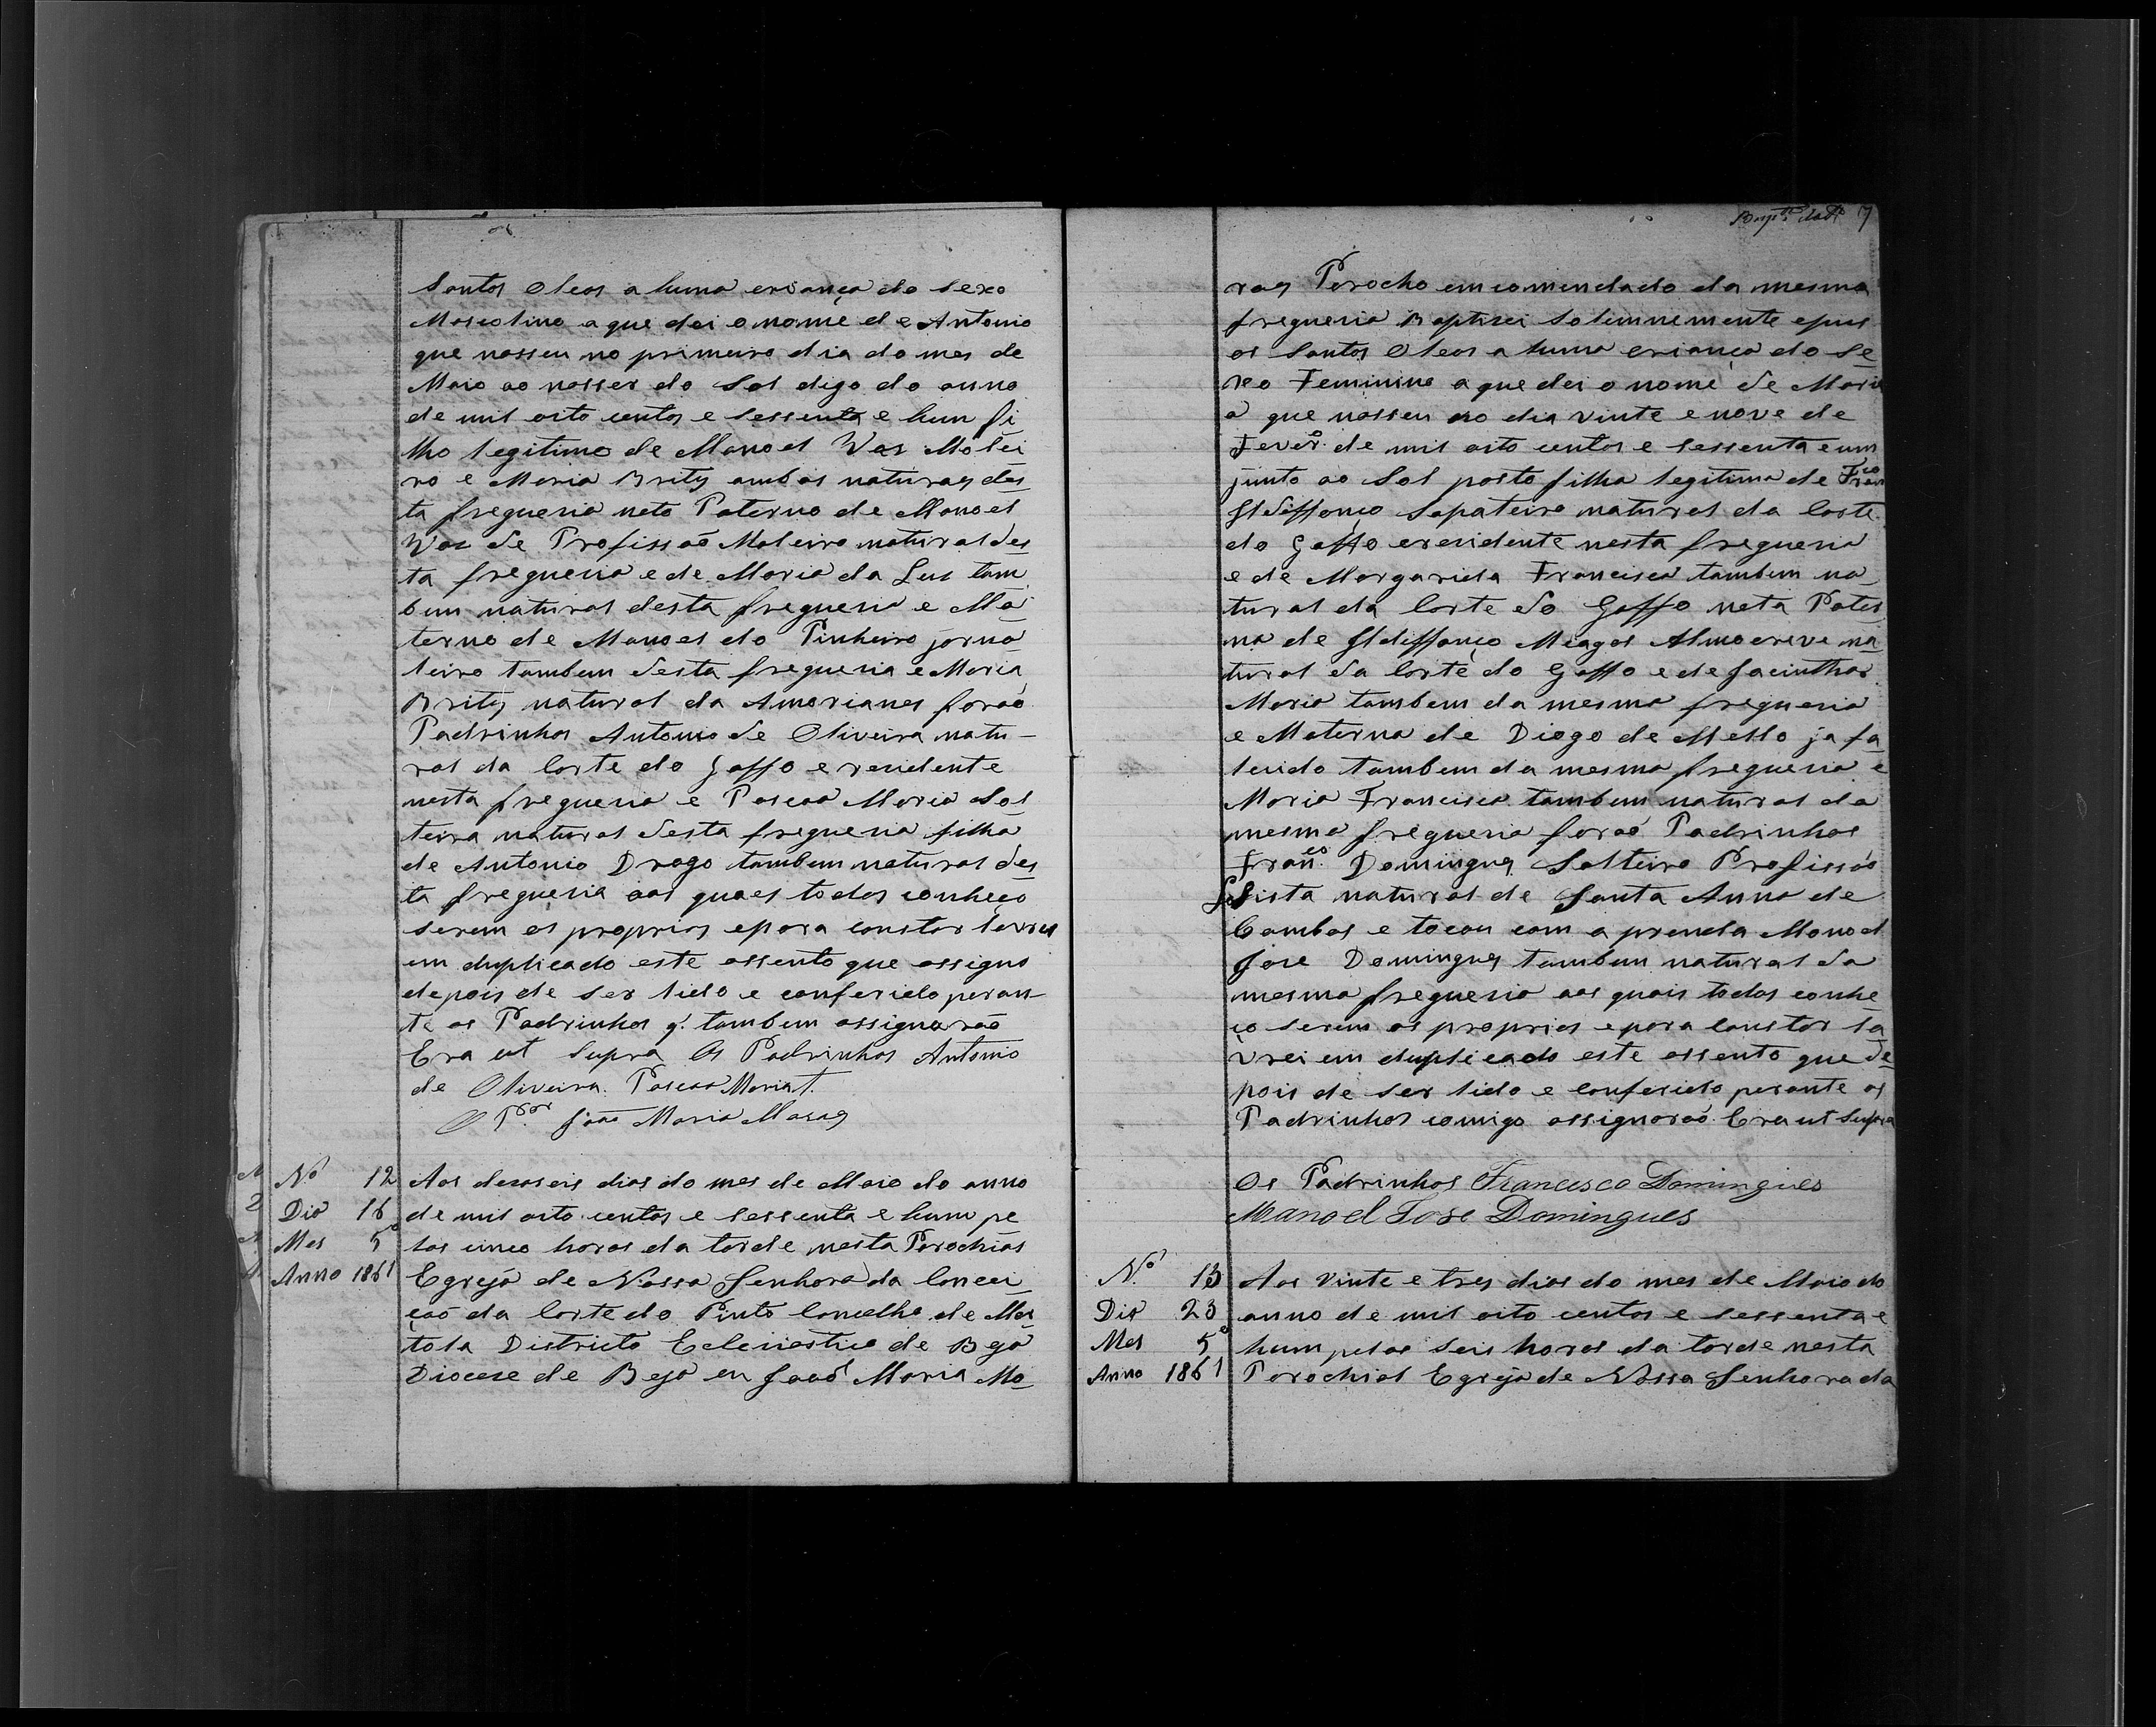 Santos Oleos a huma criança do sexo
Mascolino a que dei o nome de Antonio
que nasseu no primeiro dia do mes de
Maio ao nasser do Sol digo do anno
de mil oito centos e sessenta e hum fi
lho legitimo de Manoel Vas Molei
ro e Maria Brites ambos naturaes des
ta freguesia neto Paterno de Manoel
Vas de Profissaõ Moleiro natural des
ta freguesia e de Maria da Lus tam
bem natural desta freguesia e Ma
terno de Manoel do Pinheiro jorna
leiro tambem desta freguesia e Maria
Brites natural da Amorianes foraõ
Padrinhos Antonio de Oliveira natu-
ral da Corte do Gaffo e residente
nesta freguesia e Pascoa Maria Sol
teira natural desta freguesia filha
de Antonio Drago tambem natural des
ta freguesia aos quaes todos conheço
serem os proprios e para constar lavrei
em duplicado este assento que assigno
depois de ser lido e conferido peran-
te os Padrinhos q. tambem assignaraõ
Era ut Supra Os Padrinhos Antonio
de Oliveira. Pascoa Maria †.
O P.or João Maria Maraes
Nº 12 Aos desaseis dias do mes de Maio do anno
Dia 16 de mil oito centos e sessenta e hum pe
Mes 5º las cinco horas da tarde nesta Parochial
Anno 1861 Egreja de Nossa Senhora da Concei
çaõ da Corte do Pinto Concelho de Mer
tola Districto Eclesiastico de Beja
Diocese de Beja eu Joaõ Maria Mo
7
raes Parocho emcomendado da mesma
freguesia Baptisei Solemnemente e pus
os Santos Oleos a huma criança do Se
xo Feminino a que dei o nome de Mari
a que nasseu no dia vinte e nove de
Fever.º de mil oito centos e sessenta e um
junto ao Sol posto filha legitima de Fran.co
Ildiffonço Sapateiro natural da Corte
do Gaffo e residente nesta freguesia
e de Margarida Francisca tambem na
tural da Corte do Gaffo neta Pater
na de Ildiffonço Miagos Almocreve na
tural da Corte do Gaffo e de Jacintha
Maria tambem da mesma freguesia
e Materna de Diogo de Mello ja fa
lecido tambem da mesma freguesia e
Maria Francisca tambem natural da
mesma freguesia foraõ Padrinhos
Fran.co Domingues Solteiro Profissaõ
natural de Santa Anna de
Cambas e tocou com a prenda Manoel
Jose Domingues tambem natural da
mesma freguesia aos quais todos conhe
ço serem os proprios e para constar la
vrei em duplicado este assento que de
pois de ser lido e conferido perante os
Padrinhos comigo assignaraõ. Era ut Supra
Os Padrinhos Francisco Domingues
Manoel Jose Domingues
N.º 13 Aos vinte e tres dias do mes de Maio do
Dia 23 anno de mil oito centos e sessenta e
Mes 5º hum pelas seis horas da tarde nesta
Anno 1861 Parochial Egreja de Nossa Senhora da